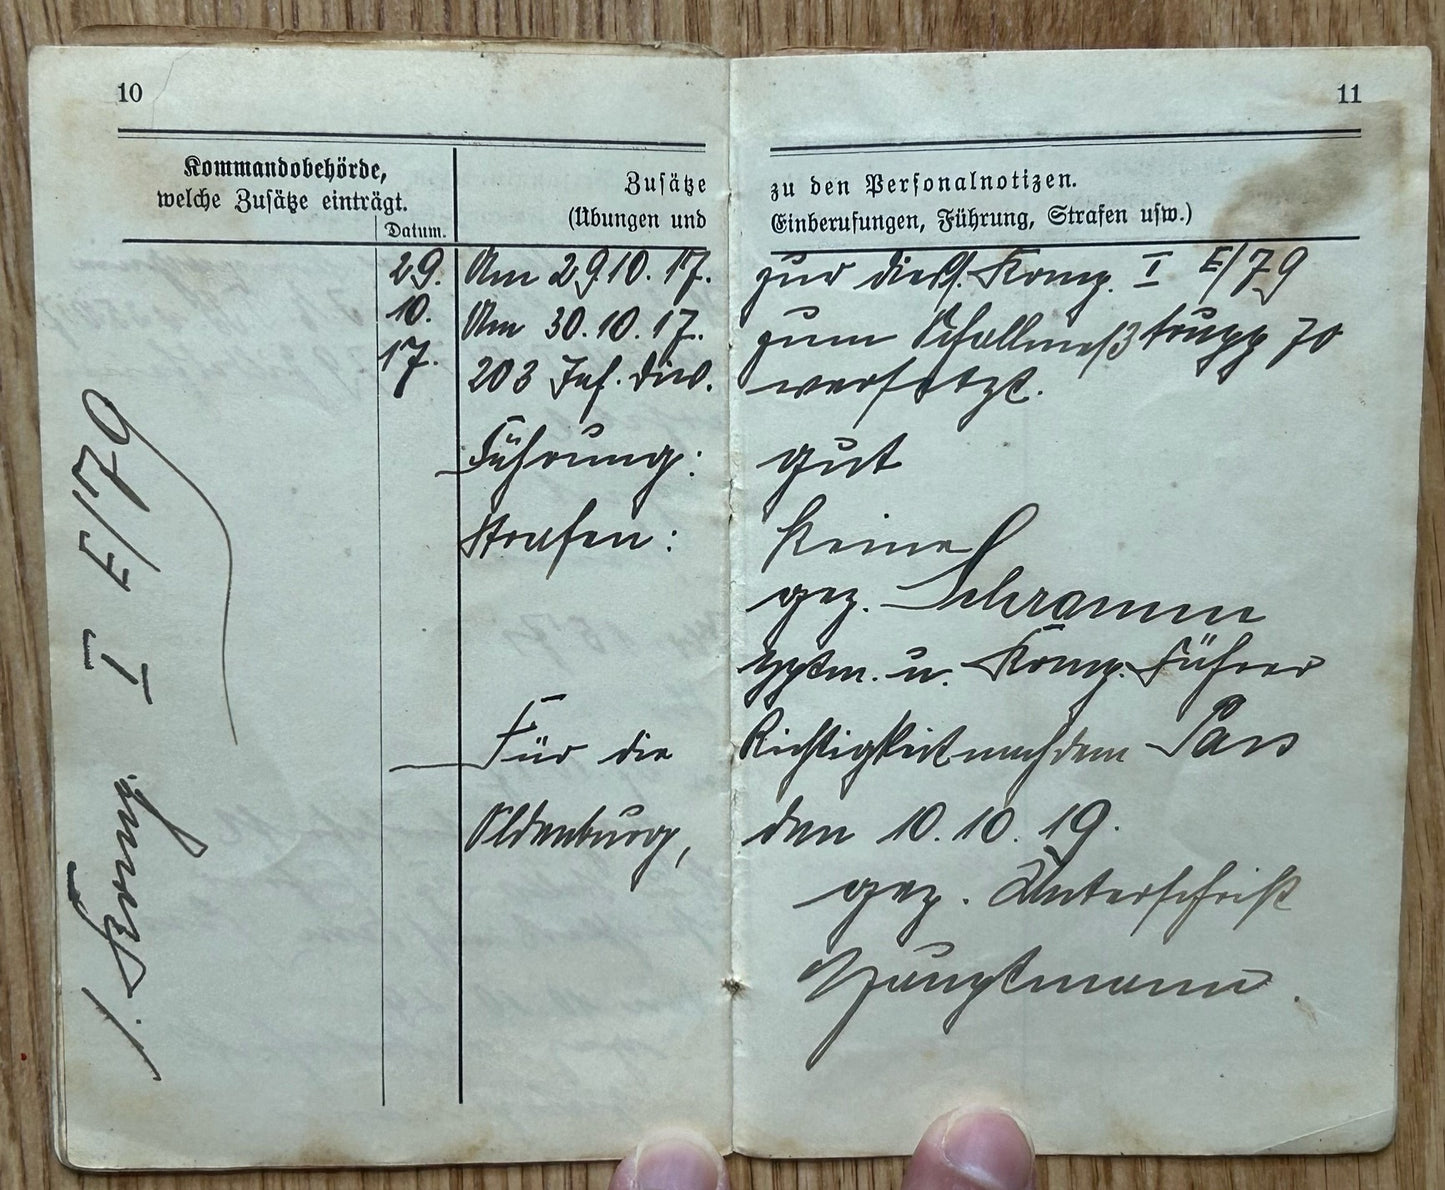 10
11
Kommandobehörde,
welche Zusätze einträgt.
Datum.
Zusätze zu den Personalnotizen.
(Übungen und Einberufungen, Führung, Strafen usw.)
1. Komp. I E/79
29. Am 29.10.17. zur Komp. I E/79
10. Am 30.10.17. zum Schallmeßtrupp 70
17. 203 Inf. Div. versetzt.
Führung: gut
Strafen: keine
gez. Schramm
Hptm. u. Komp. Führer
Für die Richtigkeit nach dem Pass
Oldenburg, den 10.10.19.
gez. Unterschrift
Hauptmann.